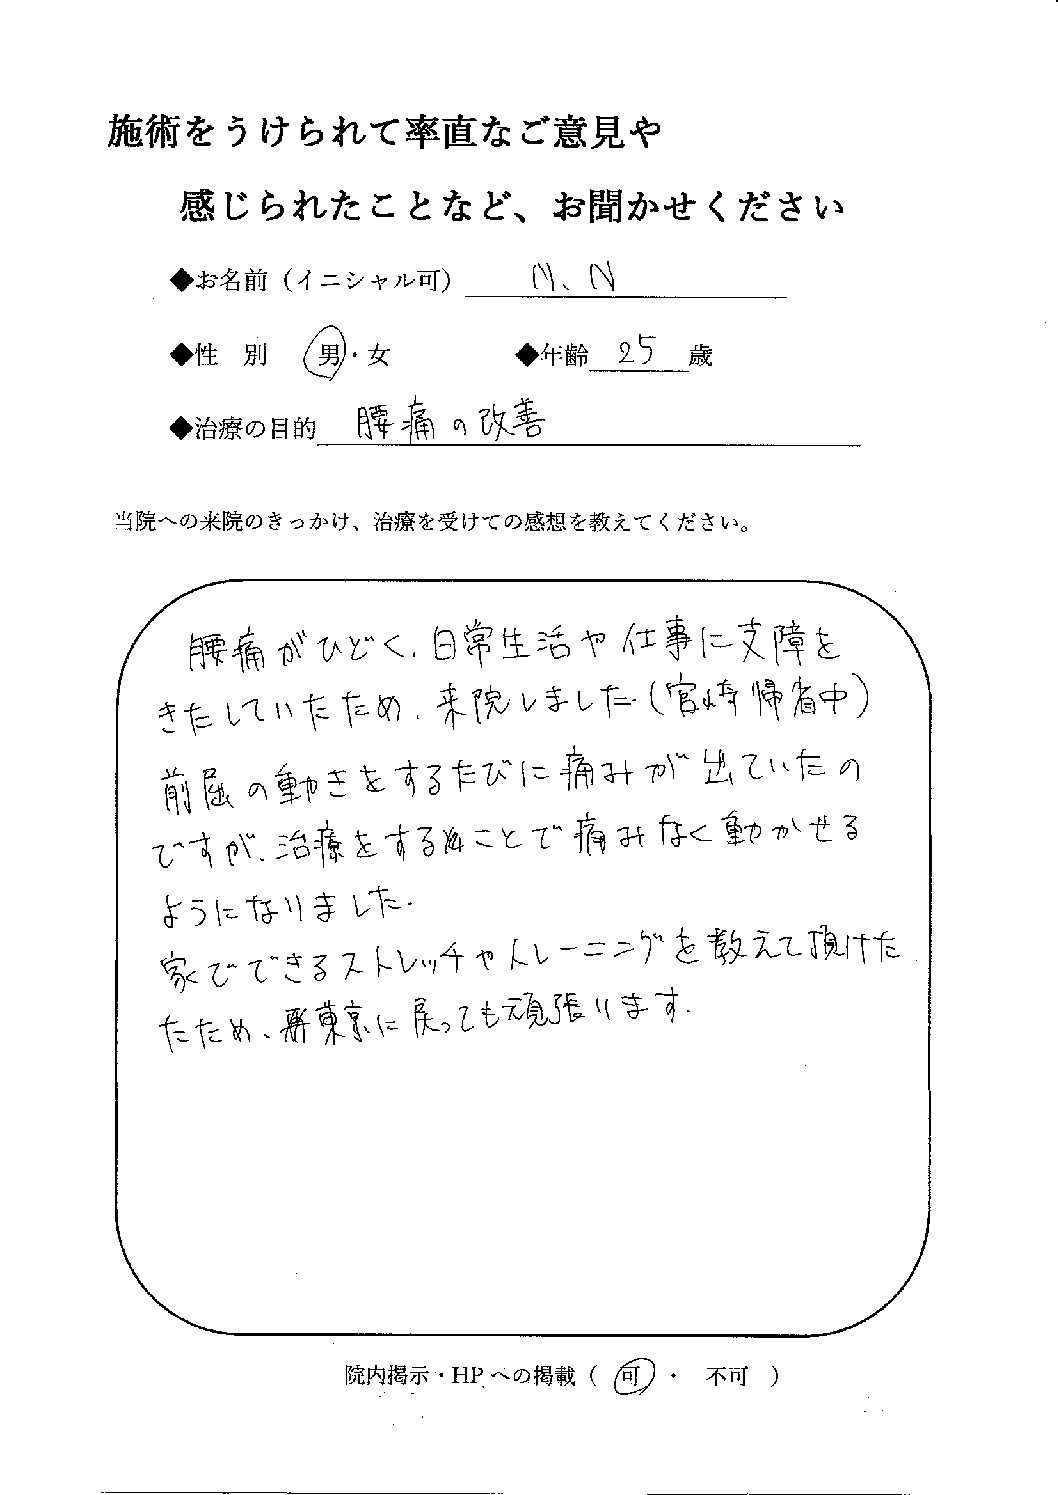 施術をうけられて率直なご意見や
感じられたことなど、お聞かせください
◆お名前（イニシャル可） N、N
◆性 別 男・女 ◆年齢 25 歳
◆治療の目的 腰痛の改善
当院への来院のきっかけ、治療を受けての感想を教えてください。
腰痛がひどく、日常生活や仕事に支障を
きたしていたため、来院しました。(宮崎帰省中)
前屈の動きをするたびに痛みが出ていたの
ですが、治療をすることで痛みなく動かせる
ようになりました。
家でできるストレッチやトレーニングを教えて頂けた
ため、東京に戻っても頑張ります。
院内掲示・HPへの掲載（ 可 ・ 不可 ）